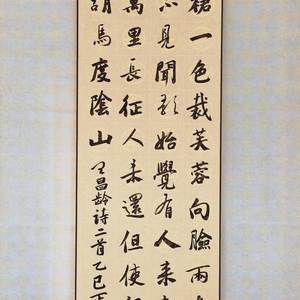 裙一色裁芙蓉向臉兩
不見聞歌始覺有人来
萬里長征人未還但使
胡馬度陰山 王昌齡詩二首乙巳